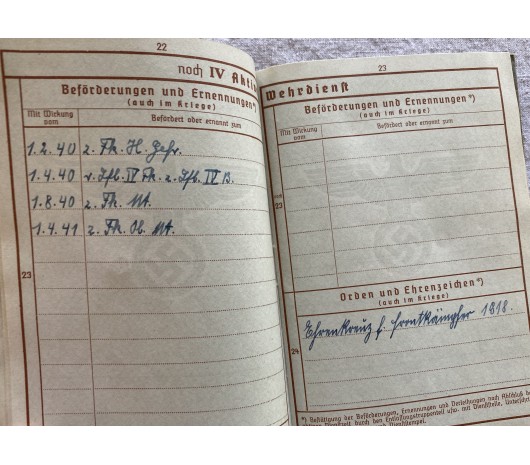 22
noch IV Aktiv
Beförderungen und Ernennungen*)
(auch im Kriege)
Mit Wirkung vom
Befördert oder ernannt zum
1.2.40 z. Fh. H. Gefr.
1.4.40 v. Lfb. IV Fh. z. Lfb. IV B.
1.8.40 z. Fh. Mt.
1.4.41 z. Fh. Ob. Mt.
23
23
Wehrdienst
Beförderungen und Ernennungen*)
(auch im Kriege)
Mit Wirkung vom
Befördert oder ernannt zum
23
Orden und Ehrenzeichen*)
(auch im Kriege)
Ehrenkreuz f. Frontkämpfer 1918.
24
*) Bestätigung der Beförderungen, Ernennungen und Verleihungen nach Abschluß
Dienstzeit durch den Entlassungstruppenteil usw. mit Dienststelle, Unterschrift
Dienststempel.